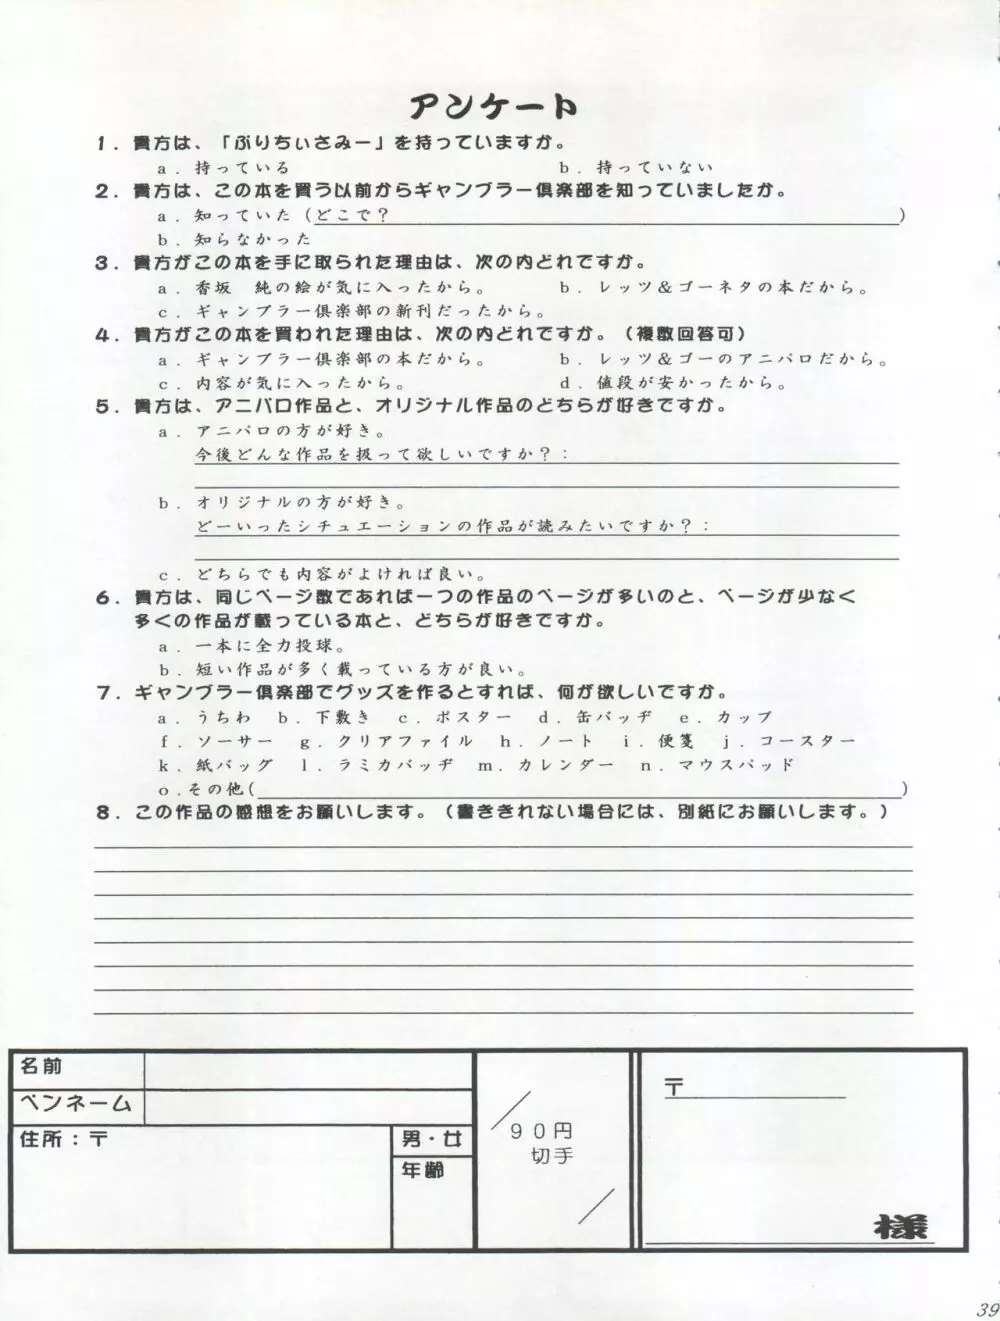 アンケート
１．貴方は、「ぷりちぃさみー」を持っていますか。
ａ．持っている　ｂ．持っていない
２．貴方は、この本を買う以前からギャンブラー倶楽部を知っていましたか。
ａ．知っていた（どこで？　）
ｂ．知らなかった
３．貴方がこの本を手に取られた理由は、次の内どれですか。
ａ．香坂　純の絵が気に入ったから。　ｂ．レッツ＆ゴーネタの本だから。
ｃ．ギャンブラー倶楽部の新刊だったから。
４．貴方がこの本を買われた理由は、次の内どれですか。（複数回答可）
ａ．ギャンブラー倶楽部の本だから。　ｂ．レッツ＆ゴーのアニパロだから。
ｃ．内容が気に入ったから。　ｄ．値段が安かったから。
５．貴方は、アニパロ作品と、オリジナル作品のどちらが好きですか。
ａ．アニパロの方が好き。
今後どんな作品を扱って欲しいですか？：
ｂ．オリジナルの方が好き。
どーいったシチュエーションの作品が読みたいですか？：
ｃ．どちらでも内容がよければ良い。
６．貴方は、同じページ数であれば一つの作品のページが多いのと、ページが少なく
多くの作品が載っている本と、どちらが好きですか。
ａ．一本に全力投球。
ｂ．短い作品が多く載っている方が良い。
７．ギャンブラー倶楽部でグッズを作るとすれば、何が欲しいですか。
ａ．うちわ　ｂ．下敷き　ｃ．ポスター　ｄ．缶バッヂ　ｅ．カップ
ｆ．ソーサー　ｇ．クリアファイル　ｈ．ノート　ｉ．便箋　ｊ．コースター
ｋ．紙バッグ　ｌ．ラミカバッヂ　ｍ．カレンダー　ｎ．マウスパッド
ｏ．その他（　）
８．この作品の感想をお願いします。（書ききれない場合には、別紙にお願いします。）
名前
ペンネーム
住所：〒
男・女
年齢
９０円
切手
〒
様
39